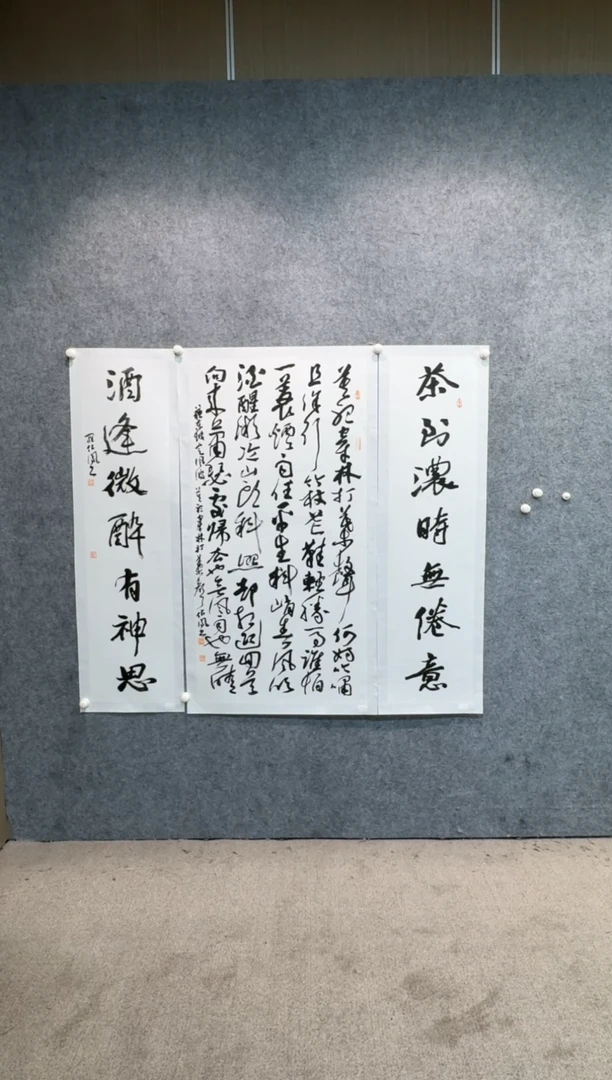 茶到濃時無倦意
莫聽穿林打葉聲何妨吟嘯
且徐行竹杖芒鞋輕勝馬誰怕
一蓑煙雨任平生料峭春風吹
酒醒微冷山頭斜照却相迎回首
向來蕭瑟處歸去也無風雨也無晴
蘇東坡定風波莫聽穿林打葉聲
酒逢微醉有神思